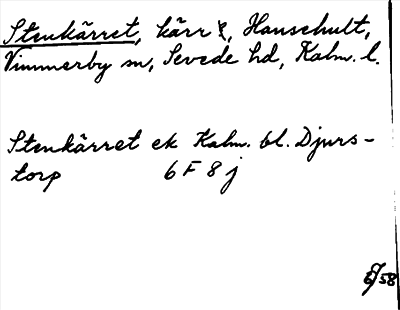 Stenkärret, kärr, Hanschult,
Vimmerby sn, Sevede hd, Kalm. l.
Stenkärret ek Kalm. bl. Djurs-
torp 6 F 8 j
58